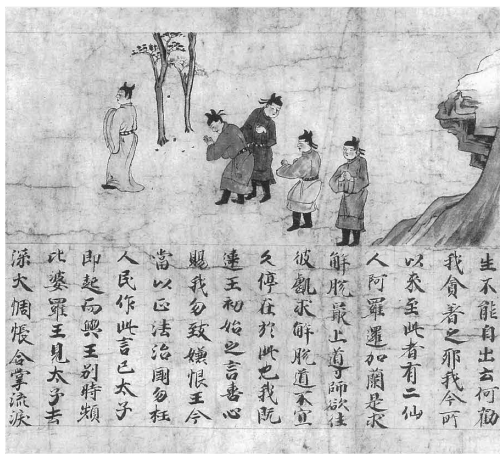 生不能自出云何勸
我貪著之耶我今所
以來至此者有二仙
人阿羅邏加蘭是求
解脫最上導師欲往
彼觀求解脫道不宜
久停在於此也我既
違王初始之言善心
賜我勿致嫌恨王今
當以正法治國勿枉
人民作此言已太子
即起而與王別時頻
比婆羅王見太子去
深大惆悵合掌流淚